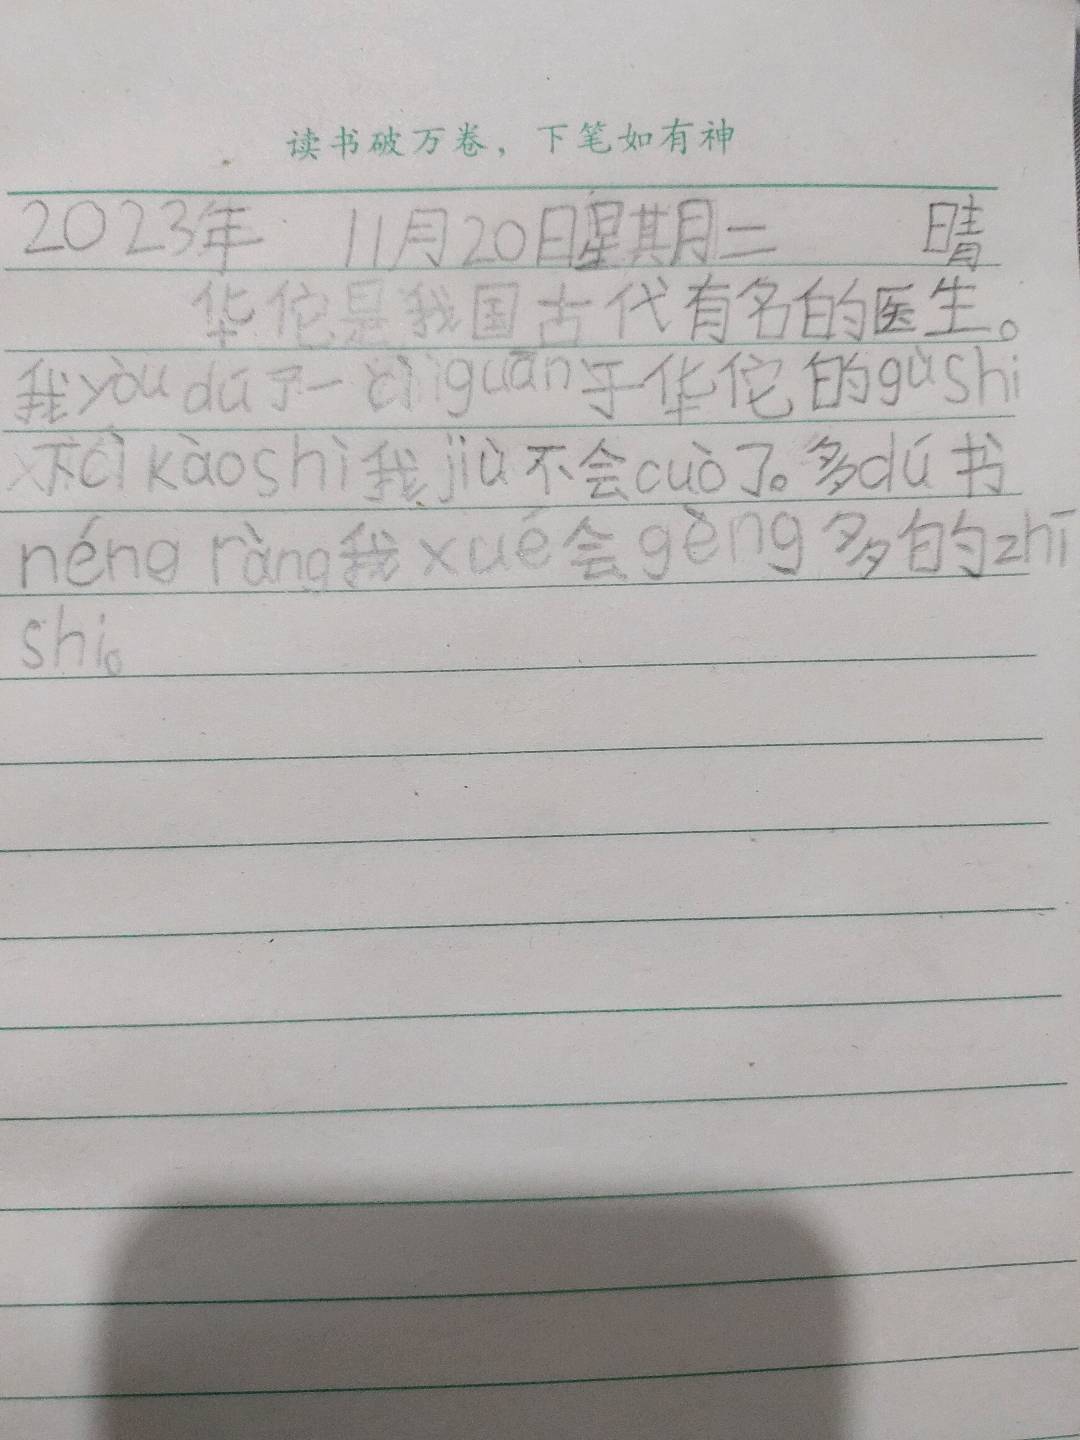 读书破万卷，下笔如有神
2023年 11月20日星期二 晴
华佗是我国古代有名的医生。
我yòu dú了一cì guān于华佗的gùshi
下cì kǎoshì我jiù不会cuò了。多dú书
néng ràng我xué会gèng多的zhī
shi。